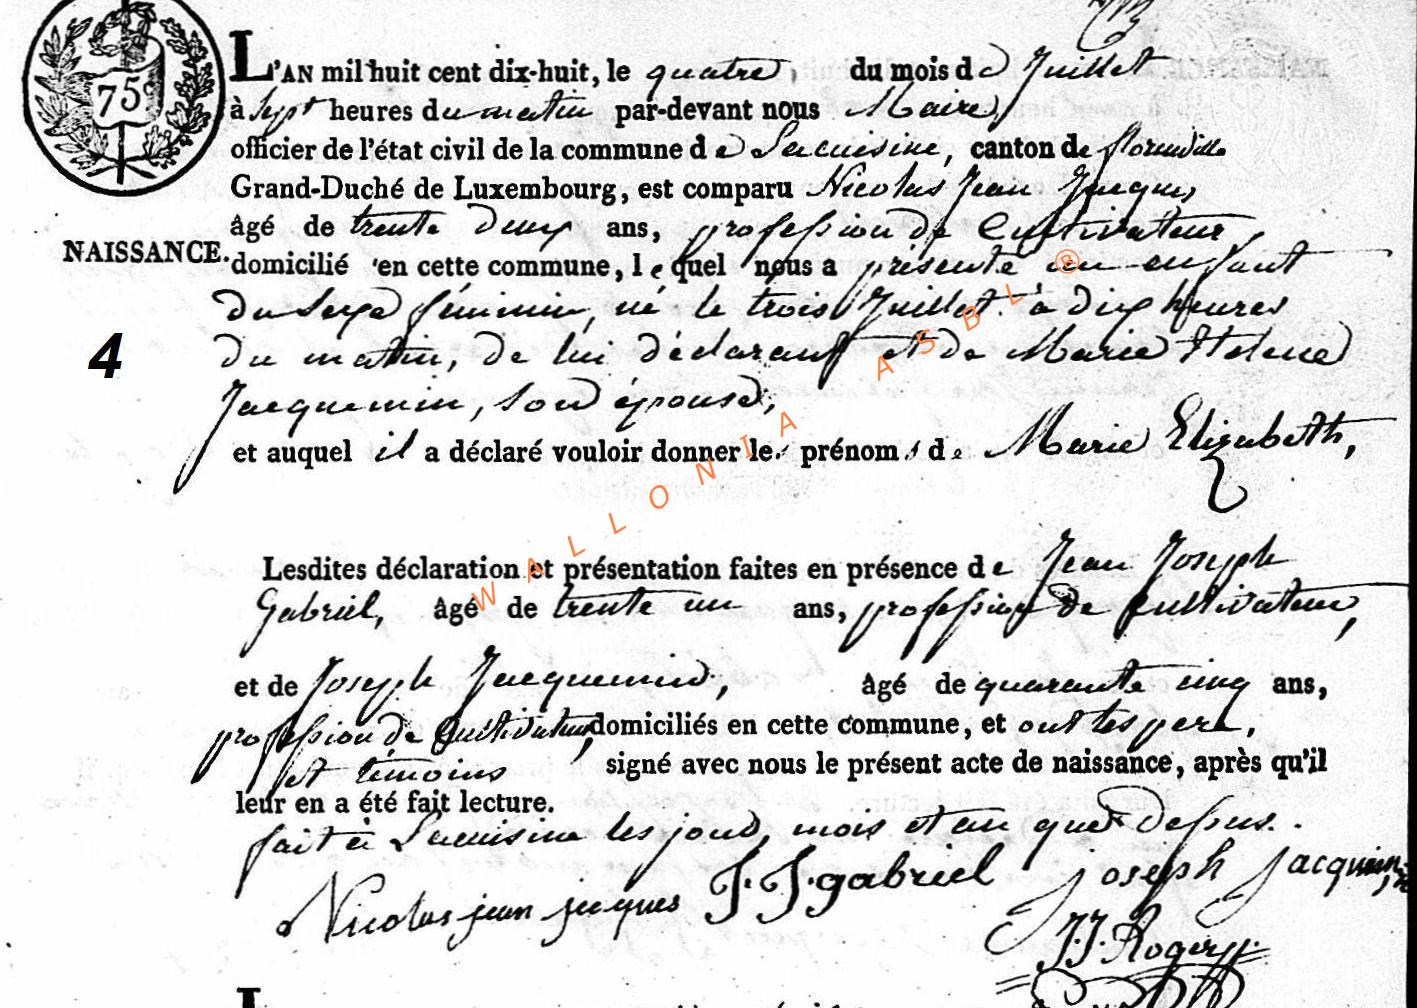 75c
L'AN mil huit cent dix-huit, le quatre, du mois de Juillet
à sept heures du matin par-devant nous Maire,
officier de l'état civil de la commune de Lacuisine, canton de florenville
Grand-Duché de Luxembourg, est comparu Nicolas Jean Jacques,
âgé de trente deux ans, profession de Cultivateur,
NAISSANCE. domicilié en cette commune, lequel nous a présenté un enfant
du sexe féminin, né le trois Juillet à dix heures
4
du matin, de lui déclarant et de Marie Helene
Jacquemin, son épouse,
et auquel il a déclaré vouloir donner les prénoms de Marie Elizabeth,
Lesdites déclaration et présentation faites en présence de Jean Joseph
Gabriel, âgé de trente un ans, profession de Cultivateur,
et de Joseph Jacquemin, âgé de quarante cinq ans,
profession de Cultivateur, domiciliés en cette commune, et ont les pere,
et témoins signé avec nous le présent acte de naissance, après qu'il
leur en a été fait lecture.
fait à Lacuisine les jour, mois et an que depus.
Nicolas jean jacques J. J. gabriel joseph Jacquemin
J. J. Roger
WALLONIA ASBL ®